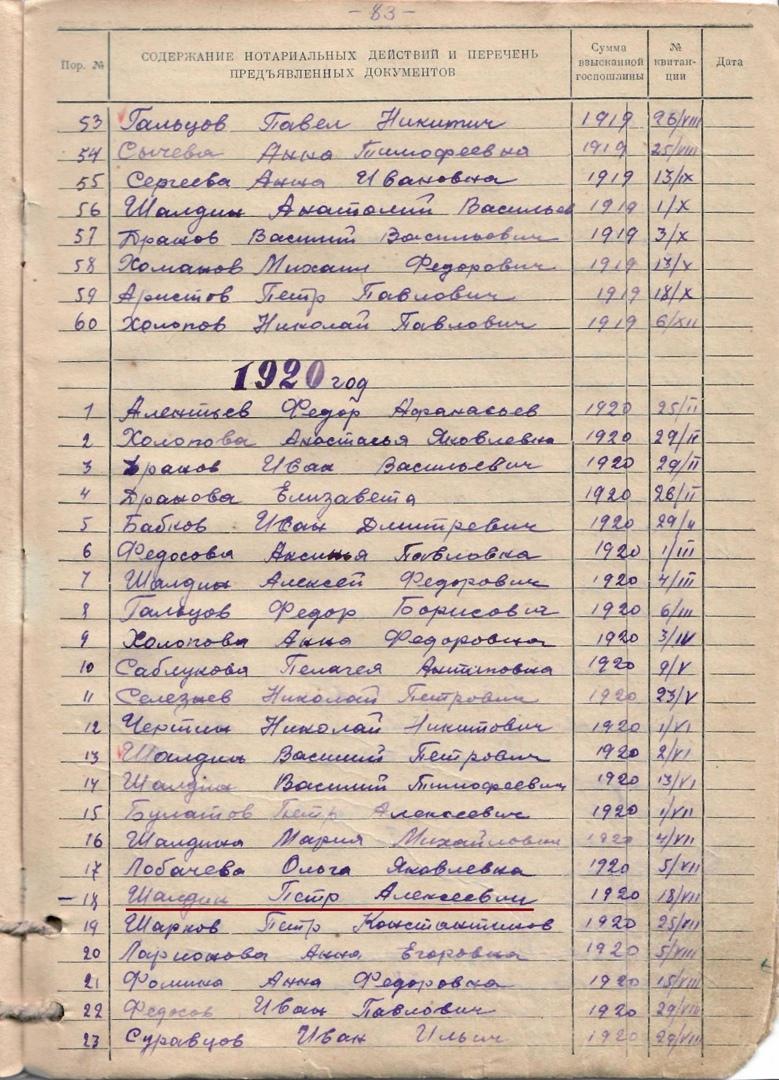 - 83 -
Пор. № СОДЕРЖАНИЕ НОТАРИАЛЬНЫХ ДЕЙСТВИЙ И ПЕРЕЧЕНЬ ПРЕДЪЯВЛЕННЫХ ДОКУМЕНТОВ Сумма взысканной госпошлины № квитан-ции Дата
53 Гальцов Павел Никитич 1919 26/VIII
54 Сычева Анна Тимофеевна 1919 25/VIII
55 Сергеева Анна Ивановна 1919 13/IX
56 Шалдин Анатолий Васильев 1919 1/X
57 Дранов Василий Васильович 1919 3/X
58 Хоманов Михаил Федорович 1919 13/X
59 Аристов Петр Павлович 1919 18/X
60 Холопов Николай Павлович 1919 6/XII
1920 год
1 Алентьев Федор Афанасьев 1920 25/II
2 Холопова Анастасья Яковлевна 1920 29/II
3 Дранов Иван Васильевич 1920 29/II
4 Дранова Елизавета 1920 26/II
5 Бабков Иван Дмитревич 1920 29/II
6 Федосова Аксинья Павловна 1920 1/III
7 Шалдин Алексей Федорович 1920 4/III
8 Гальцов Федор Борисович 1920 6/III
9 Холопова Анна Федоровна 1920 3/IV
10 Саблукова Пелагея Антиповна 1920 9/V
11 Селезнев Николай Петрович 1920 23/V
12 Чертин Николай Никитович 1920 1/VI
13 Шалдин Василий Петрович 1920 2/VI
14 Шалдин Василий Тимофеевич 1920 13/VI
15 Булатов Петр Алексеевич 1920 1/VII
16 Шалдина Мария Михайлович 1920 4/VII
17 Лобачева Ольга Яковлевна 1920 5/VII
18 Шалдин Петр Алексеевич 1920 18/VII
19 Шарков Петр Константинов 1920 25/VII
20 Ларионова Анна Егоровна 1920 5/VIII
21 Фомина Анна Федоровна 1920 15/VIII
22 Федосов Иван Павлович 1920 29/VIII
23 Суравцов Иван Ильич 1920 29/VIII